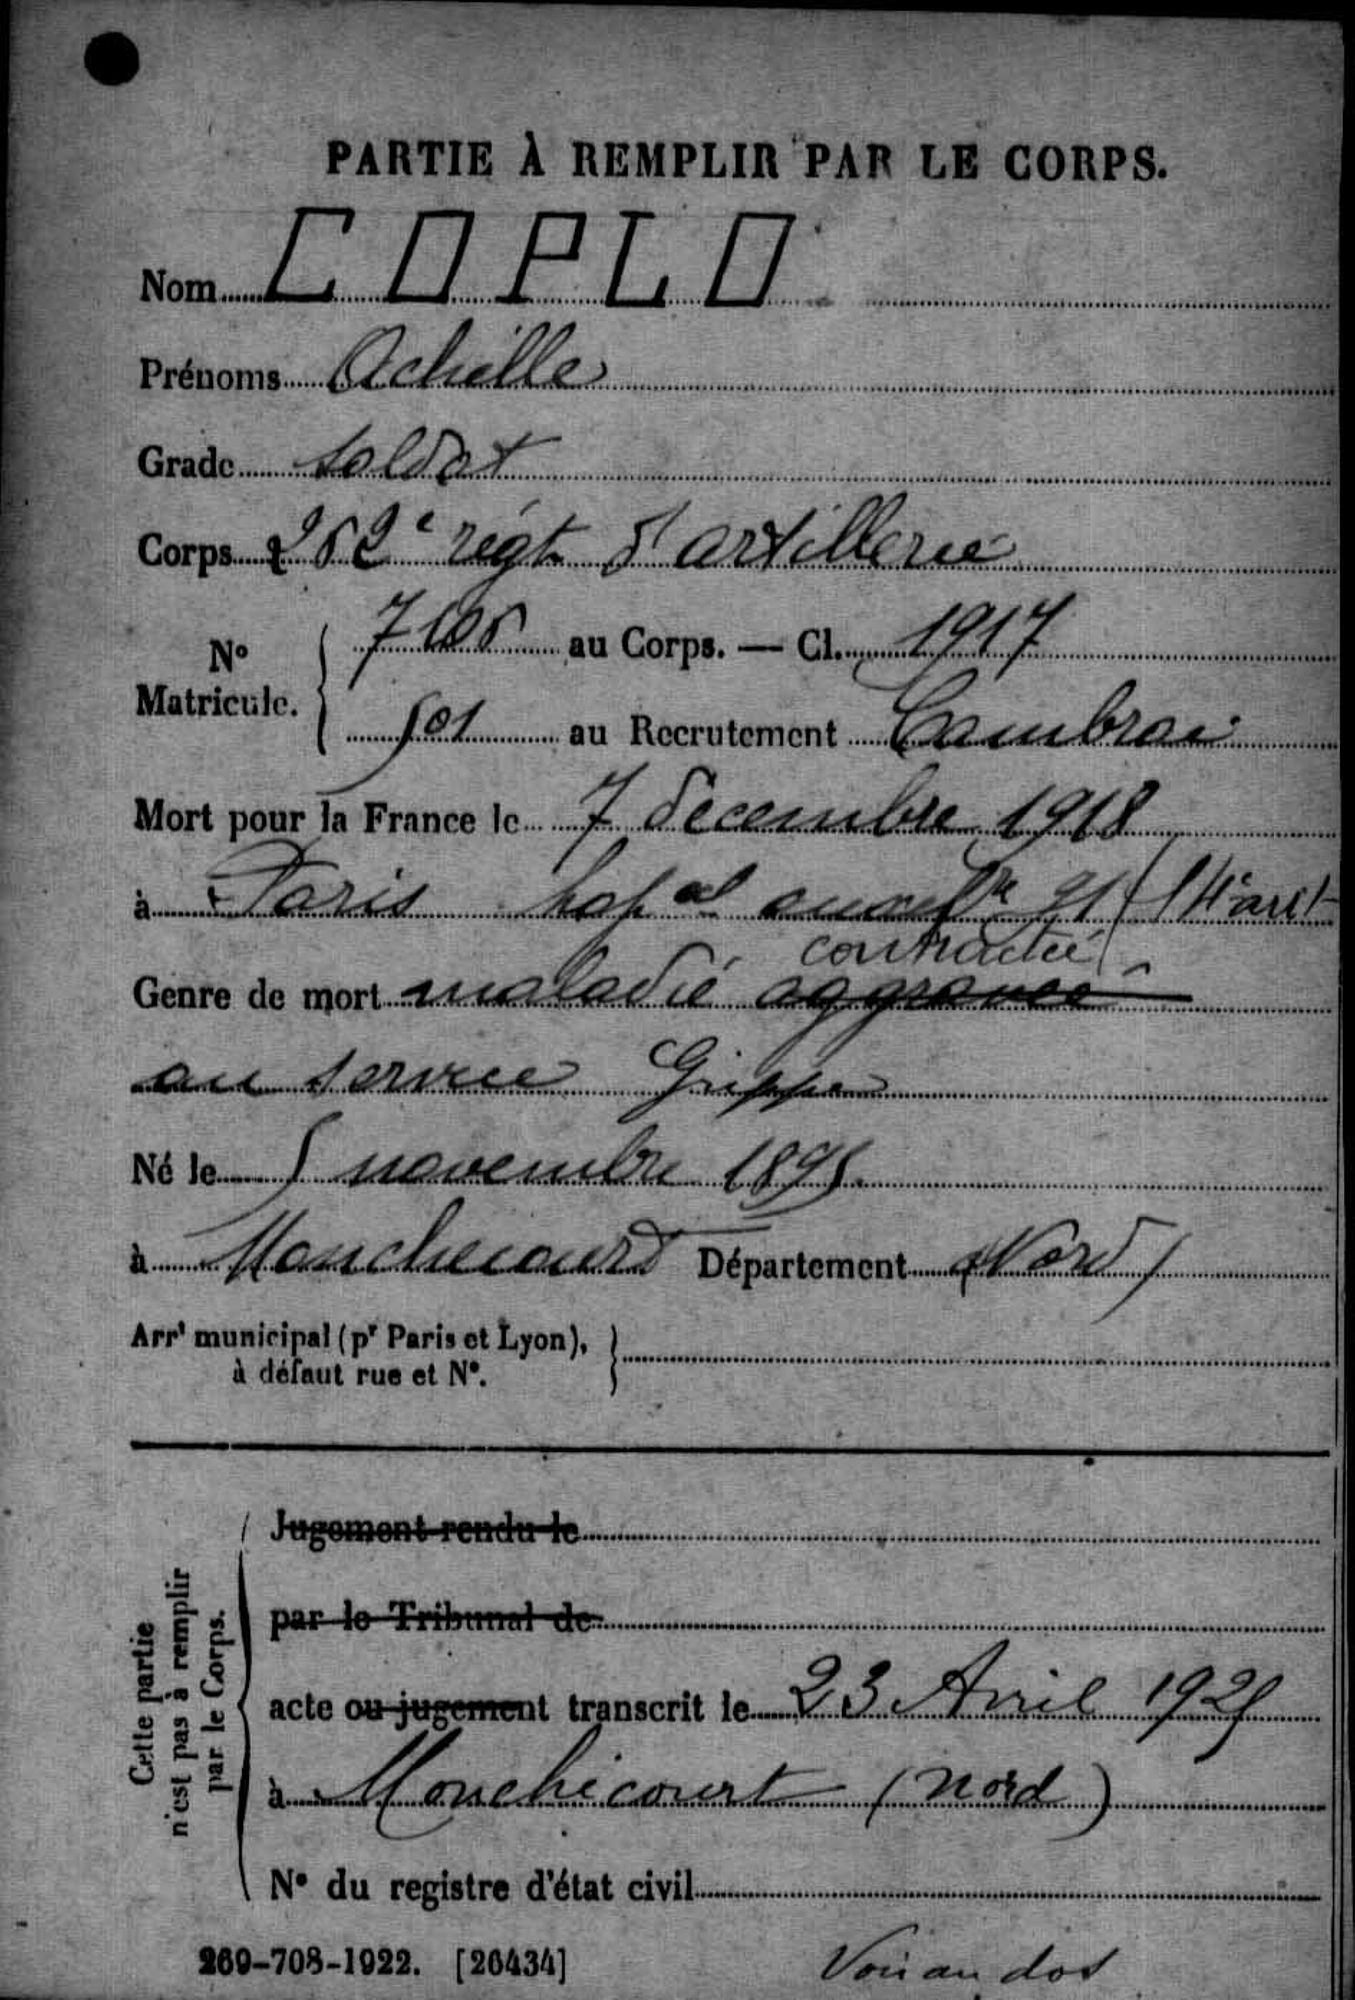 PARTIE À REMPLIR PAR LE CORPS.
Nom COPLO
Prénoms Achille
Grade soldat
Corps 262e régt d'artillerie
N° Matricule. au Corps. — Cl. 1917
501 au Recrutement Cambrai
Mort pour la France le 7 décembre 1918
à Paris hopal 91 (14e arrt
contractée
Genre de mort maladie aggravée
au service Grippe
Né le 5 novembre 1895
à Monchecourt Département (Nord)
Arrt municipal (pr Paris et Lyon),
à défaut rue et N°.
Cette partie
n'est pas à remplir
par le Corps.
Jugement rendu le
par le Tribunal de
acte ou jugement transcrit le 23 Avril 1925
à Monchécourt (Nord)
N° du registre d'état civil
269-708-1922. [26434]
Voir au dos